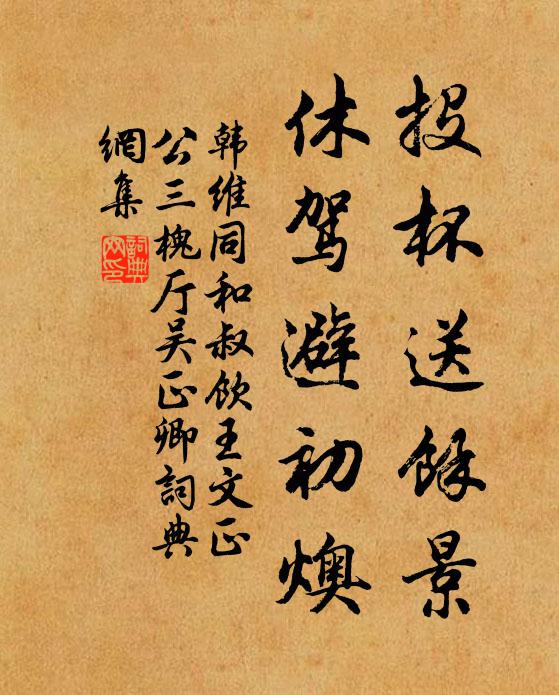 投杯送馀景
休驾避初燠
韩维同和叔饮王文正
公三槐厅吴正卿詞典
網集
詞典
网印